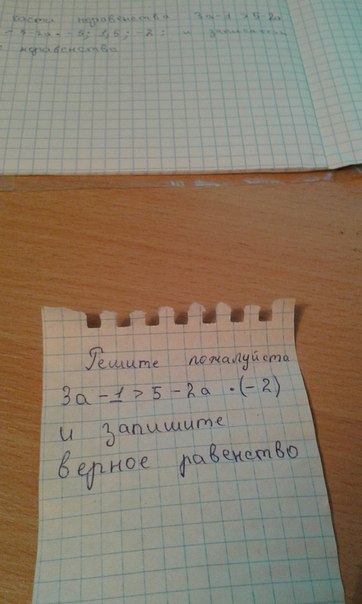 части неравенства 3a-1>5-2a
-5; 1,5; -2; и запишите
неравенство
Решите пожалуйста
3a-1>5-2a •(-2)
и запишите
верное равенство